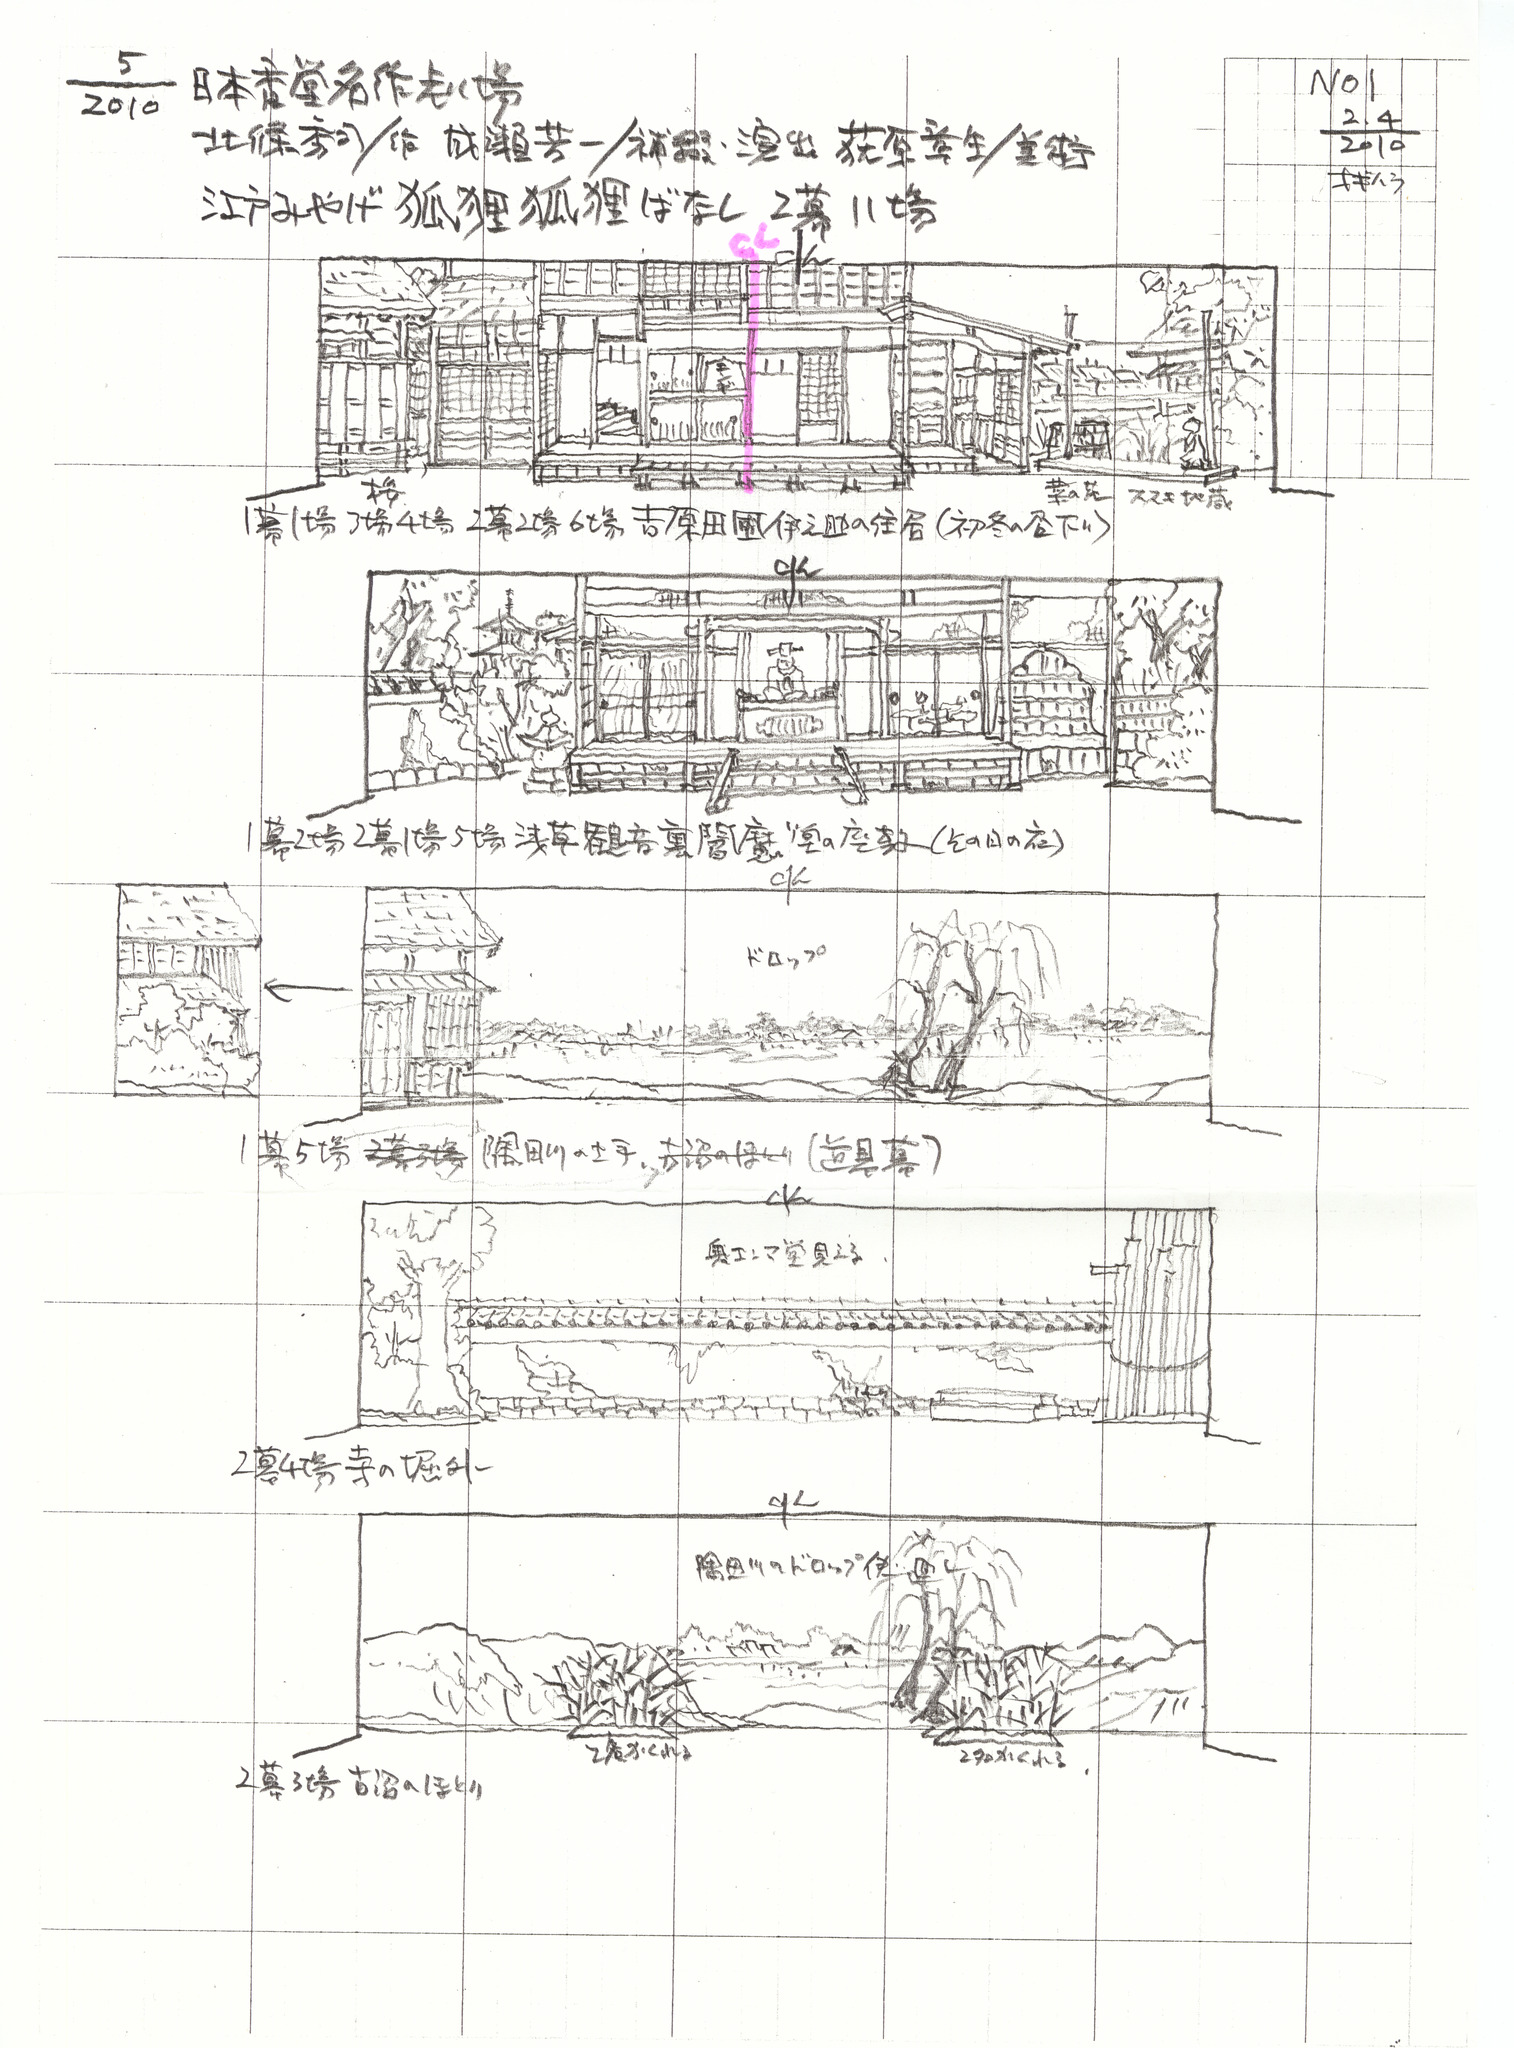 5/2010 日本香堂名作劇場
NO1
北條秀司/作 成瀬芳一/補綴・演出 荻原幸生/美術
2.4/2010
江戸みやげ 狐狸狐狸ばなし 2幕11場
CL
CL
菜の花 ススキ 地蔵
1幕1場 3場4場 2幕2場6場 吉原田圃伊之助の住居(初冬の昼下り)
CL
1幕2場 2幕1場5場 浅草観音裏閻魔堂の座敷(その日の夜)
CL
ドロップ
1幕5場 2幕3場 隅田川の土手、古沼のほとり(道具幕)
CL
奥エンマ堂見える
2幕4場 寺の堀外
CL
隅田川のドロップ使い回し
2名かくれる 2名かくれる
2幕3場 古沼のほとり